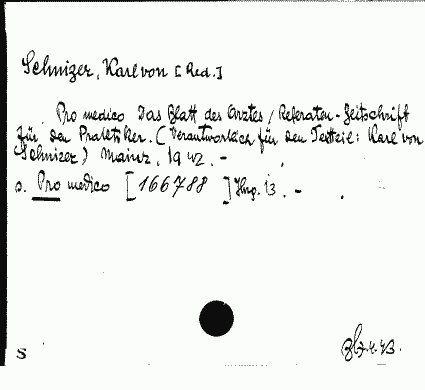 Schnizer, Karl von [Red.]
Pro medico. Das Blatt des Arztes / Referaten-Zeitschrift
für den Praktiker. (Verantwortlich für den Textteil: Karl von
Schnizer) Mainz, 1942. -
s. Pro medico [166788] Jhrg. 13. -
S